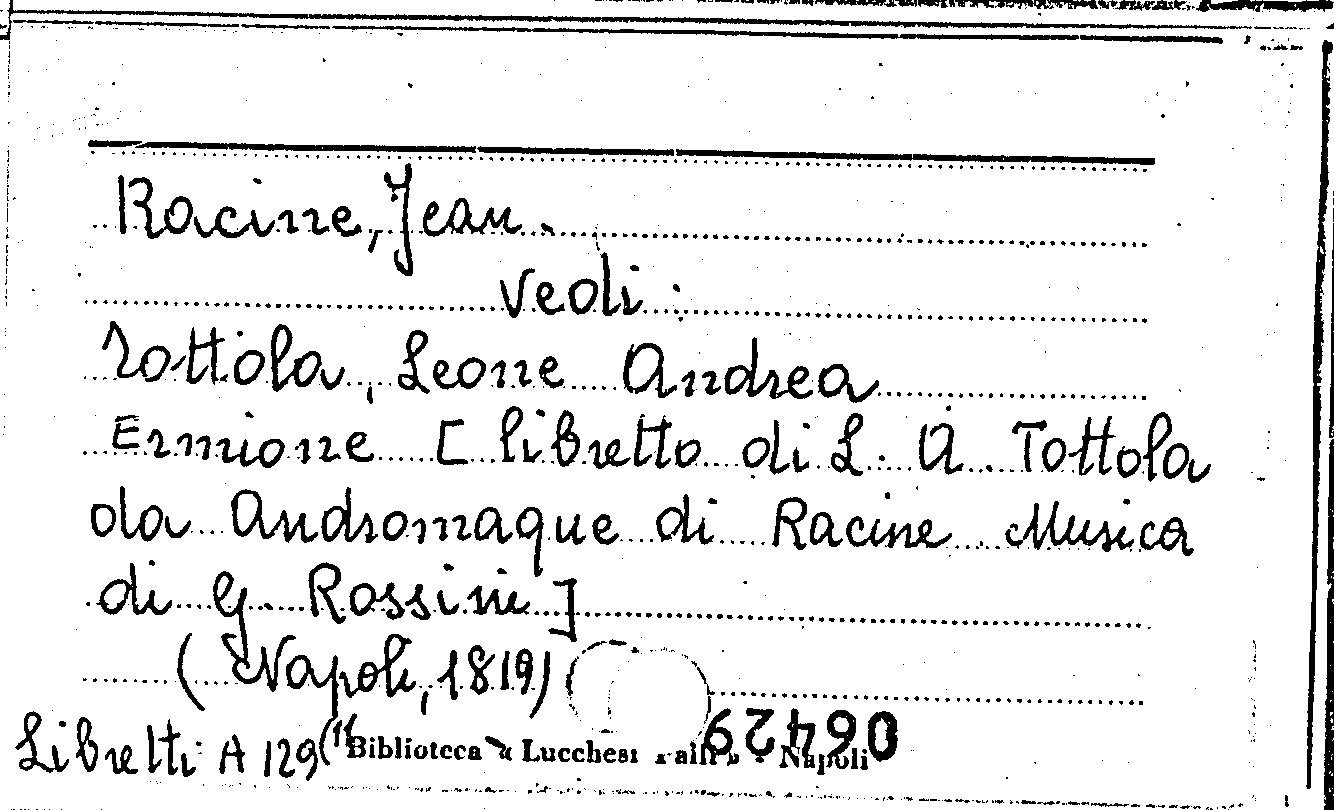 Racine, Jean.
vedi:
Tottola, Leone Andrea
Ermione [libretto di L. A. Tottola
da Andromaque di Racine Musica
di G. Rossini]
(Napoli, 1819)
Libretti A 129(
Biblioteca « Lucchesi Palli » - Napoli
06429